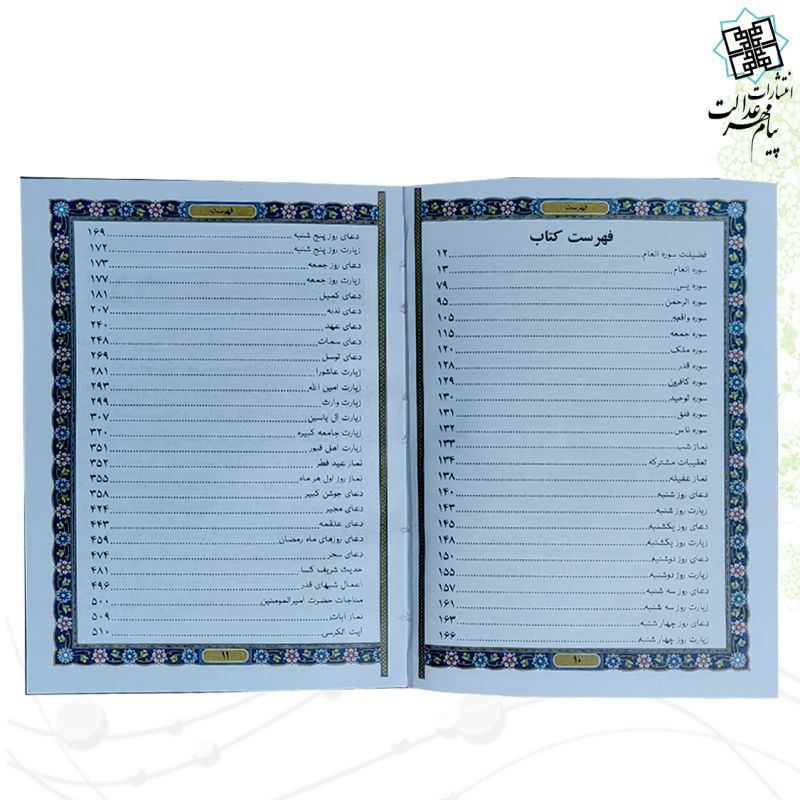 انتشارات
پیام مهر عدالت
فهرست
فهرست کتاب
فضیلت سوره انعام ۱۲
سوره انعام ۱۳
سوره یس ۷۹
سوره الرحمن ۹۵
سوره واقعه ۱۰۵
سوره جمعه ۱۱۵
سوره ملک ۱۲۰
سوره قدر ۱۲۸
سوره کافرون ۱۲۹
سوره توحید ۱۳۰
سوره فلق ۱۳۱
سوره ناس ۱۳۲
نماز شب ۱۳۳
تعقیبات مشترکه ۱۳۴
نماز غفیله ۱۳۸
دعای روز شنبه ۱۴۰
زیارت روز شنبه ۱۴۳
دعای روز یکشنبه ۱۴۵
زیارت روز یکشنبه ۱۴۸
دعای روز دوشنبه ۱۵۰
زیارت روز دوشنبه ۱۵۵
دعای روز سه شنبه ۱۵۷
زیارت روز سه شنبه ۱۶۱
دعای روز چهار شنبه ۱۶۳
زیارت روز چهار شنبه ۱۶۶
۱۰
فهرست
دعای روز پنج شنبه ۱۶۹
زیارت روز پنج شنبه ۱۷۲
دعای روز جمعه ۱۷۳
زیارت روز جمعه ۱۷۷
دعای کمیل ۱۸۱
دعای ندبه ۲۰۷
دعای عهد ۲۴۰
دعای سمات ۲۴۸
دعای توسل ۲۶۹
زیارت عاشورا ۲۸۱
زیارت امین الله ۲۹۳
زیارت وارث ۲۹۹
زیارت آل یاسین ۳۰۷
زیارت جامعه کبیره ۳۲۰
زیارت اهل قبور ۳۵۱
نماز عید فطر ۳۵۲
نماز روز اول هر ماه ۳۵۵
دعای جوشن کبیر ۳۵۸
دعای مجیر ۴۲۴
دعای علقمه ۴۴۳
دعای روزهای ماه رمضان ۴۵۹
دعای سحر ۴۷۴
حدیث شریف کسا ۴۸۱
اعمال شبهای قدر ۴۹۶
مناجات حضرت امیرالمومنین ۵۰۰
نماز آیات ۵۰۹
آیت الکرسی ۵۱۰
۱۱